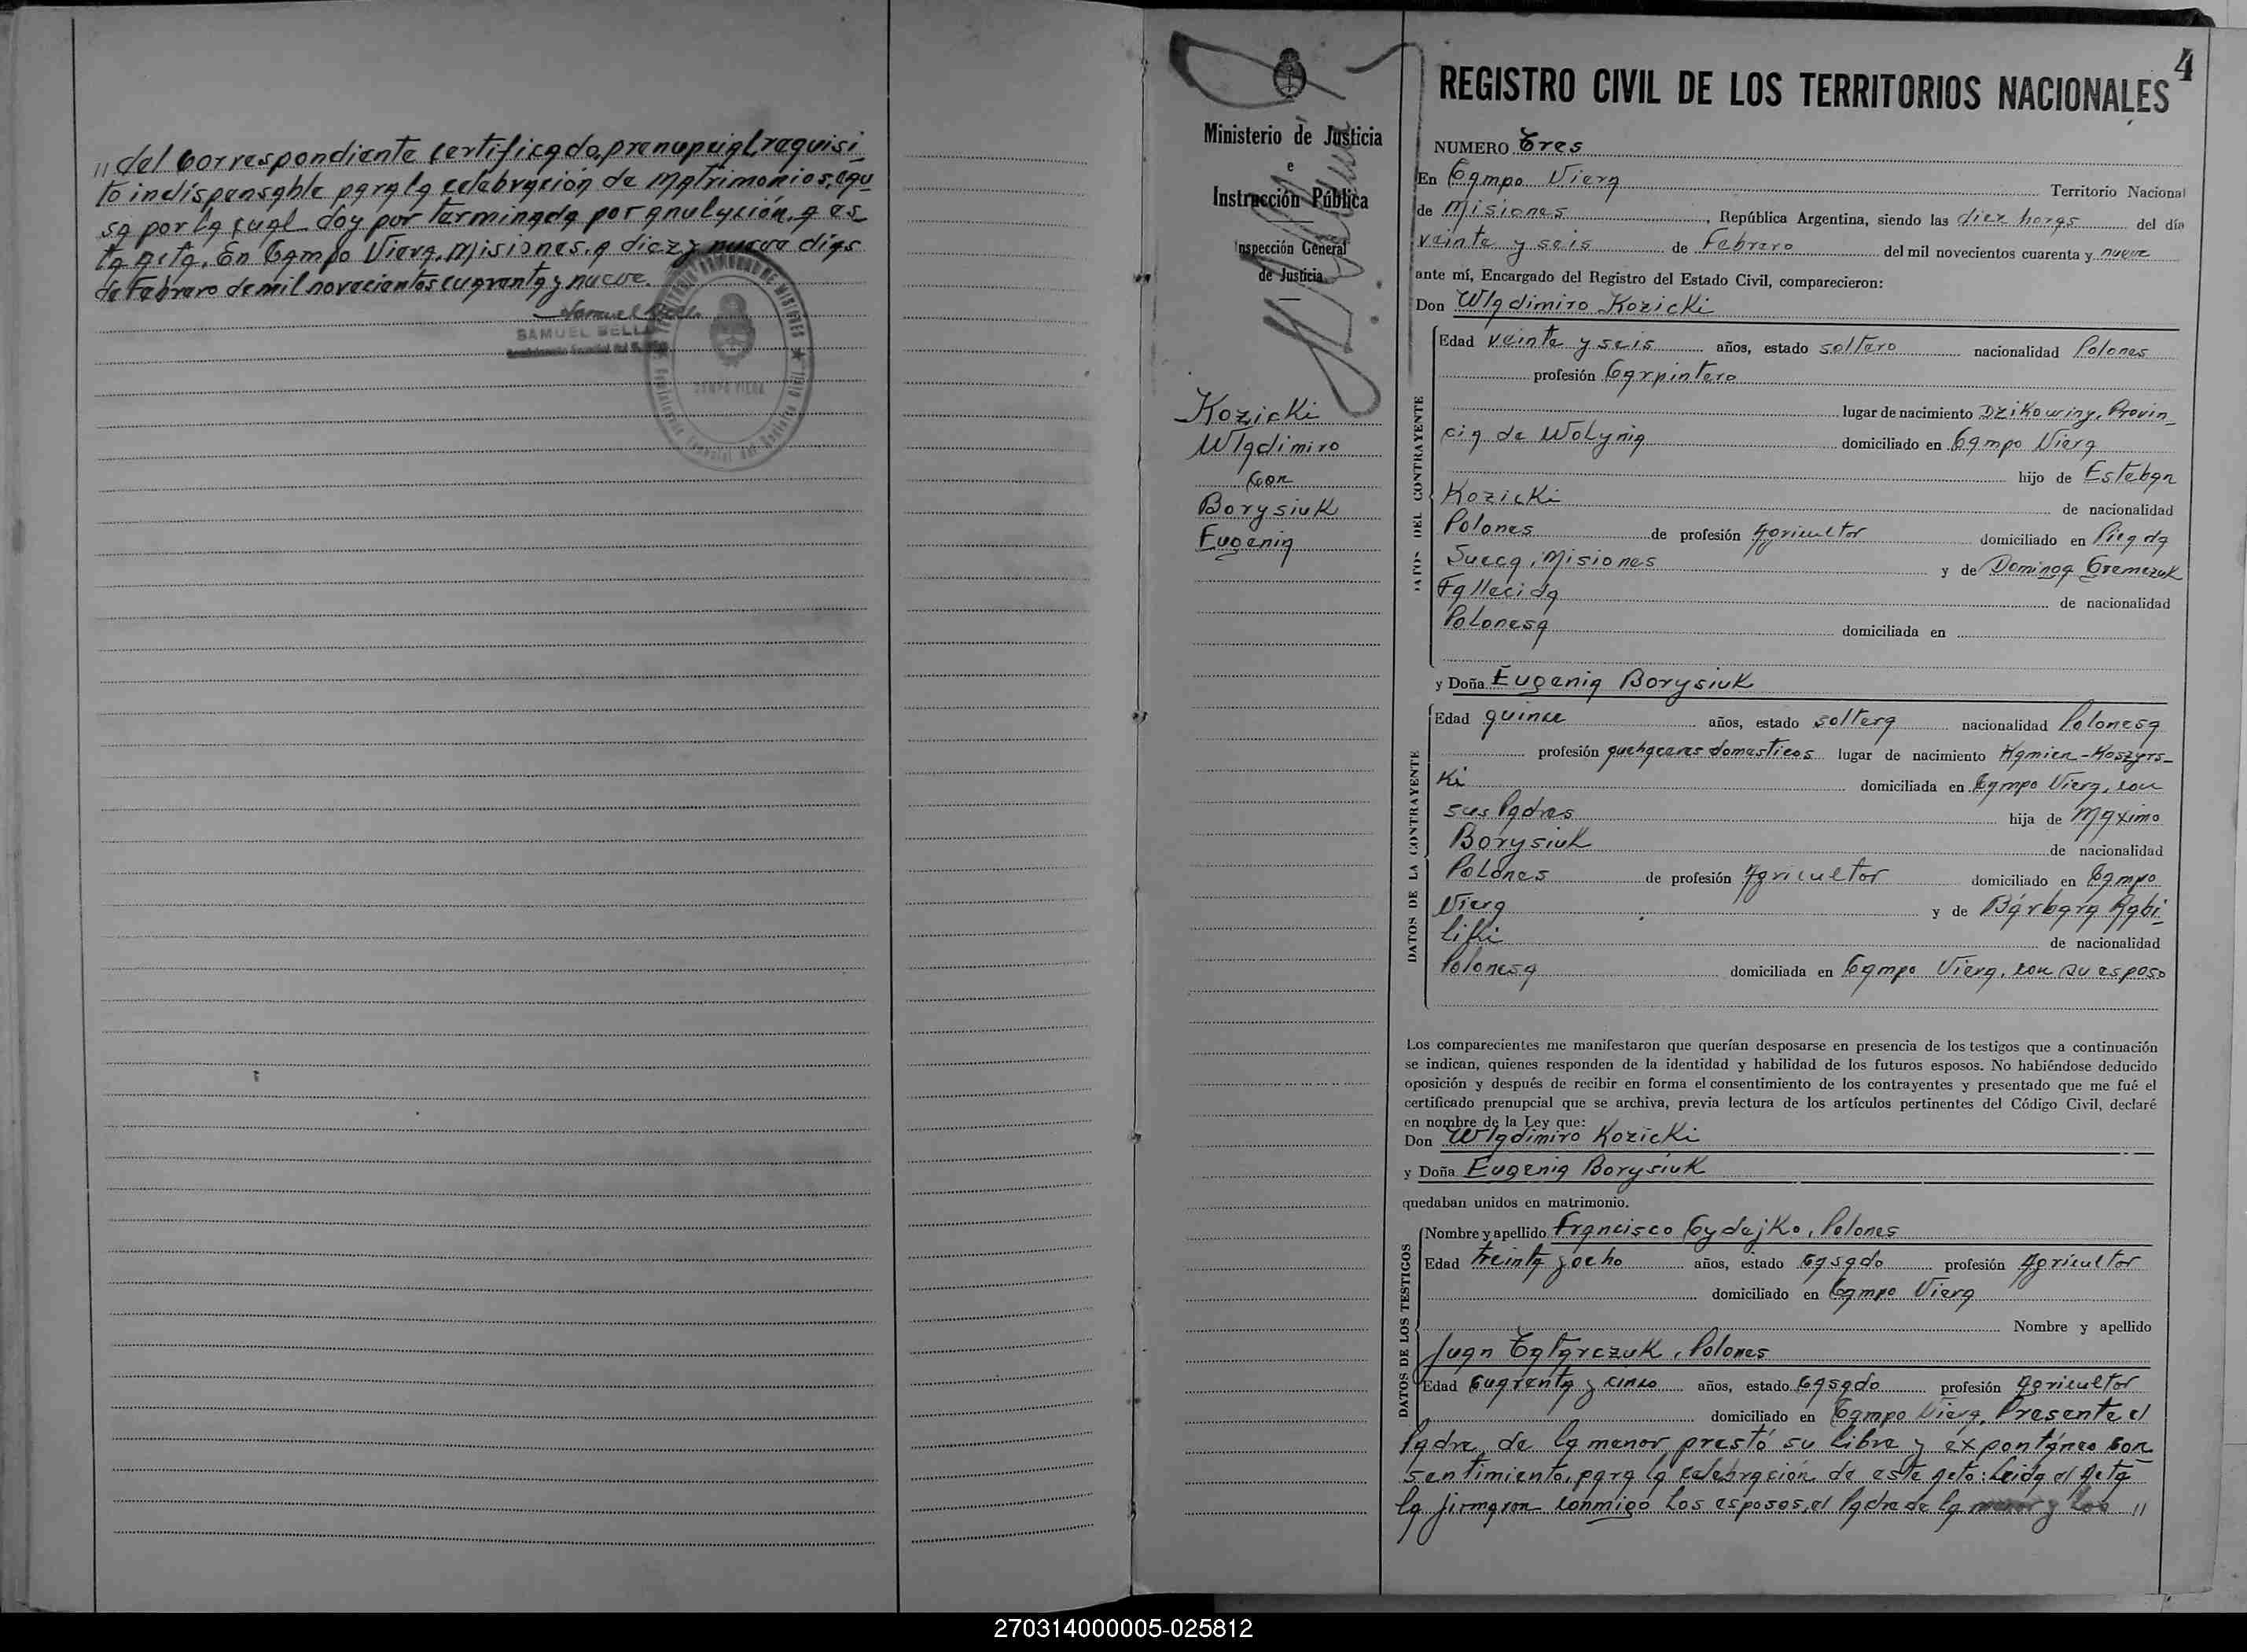 " del Correspondiente certificado, prenupcial, requisi-
to indispensable para la celebración de Matrimonios, cau
sa por la cual doy por terminada por anulación, a es-
ta acta. En Campo Viera, Misiones, a diez y nueve días
de Febrero de mil novecientos cuarenta y nueve.
SAMUEL BELL
CAMPO VIERA
4
Ministerio de Justicia
e
Instrucción Pública
Inspección General
de Justicia
Kozicki
Wladimiro
Con
Borysiuk
Eugenia
REGISTRO CIVIL DE LOS TERRITORIOS NACIONALES
NUMERO Tres
En Campo Viera Territorio Nacional
de Misiones, República Argentina, siendo las diez horas del día
veinte y seis de Febrero del mil novecientos cuarenta y nueve
ante mí, Encargado del Registro del Estado Civil, comparecieron:
Don Wladimiro Kozicki
DATOS DEL CONTRAYENTE
Edad veinte y seis años, estado soltero nacionalidad Polones
profesión Carpintero
lugar de nacimiento Dzikowiny, Provin-
cia de Wolynia domiciliado en Campo Viera
hijo de Esteban
Kozicki de nacionalidad
Polones de profesión Agricultor domiciliado en Picada
Sueca, Misiones y de Dominga Gremczuk
Fallecida de nacionalidad
Polonesa domiciliada en
y Doña Eugenia Borysiuk
DATOS DE LA CONTRAYENTE
Edad quince años, estado soltera nacionalidad Polonesa
profesión quehaceres domesticos lugar de nacimiento Kamien-Koszyrs-
ki domiciliada en Campo Viera, con
sus Padres hija de Máximo
Borysiuk de nacionalidad
Polones de profesión Agricultor domiciliado en Campo
Viera y de Bárbara
de nacionalidad
Polonesa domiciliada en Campo Viera, con su esposo
Los comparecientes me manifestaron que querían desposarse en presencia de los testigos que a continuación
se indican, quienes responden de la identidad y habilidad de los futuros esposos. No habiéndose deducido
oposición y después de recibir en forma el consentimiento de los contrayentes y presentado que me fué el
certificado prenupcial que se archiva, previa lectura de los artículos pertinentes del Código Civil, declaré
en nombre de la Ley que:
Don Wladimiro Kozicki
y Doña Eugenia Borysiuk
quedaban unidos en matrimonio.
DATOS DE LOS TESTIGOS
Nombre y apellido Francisco Cydejko, Polones
Edad treinta y ocho años, estado Casado profesión Agricultor
domiciliado en Campo Viera
Nombre y apellido
Juan Tatarczuk, Polones
Edad Cuarenta y cinco años, estado Casado profesión Agricultor
domiciliado en Campo Viera, Presente el
Padre, de la menor, prestó su libre y expontáneo con
sentimiento, para la celebración de este acto: Leida el Acta
la firmaron conmigo Los esposos, el Padre de la menor y los "
270314000005-025812